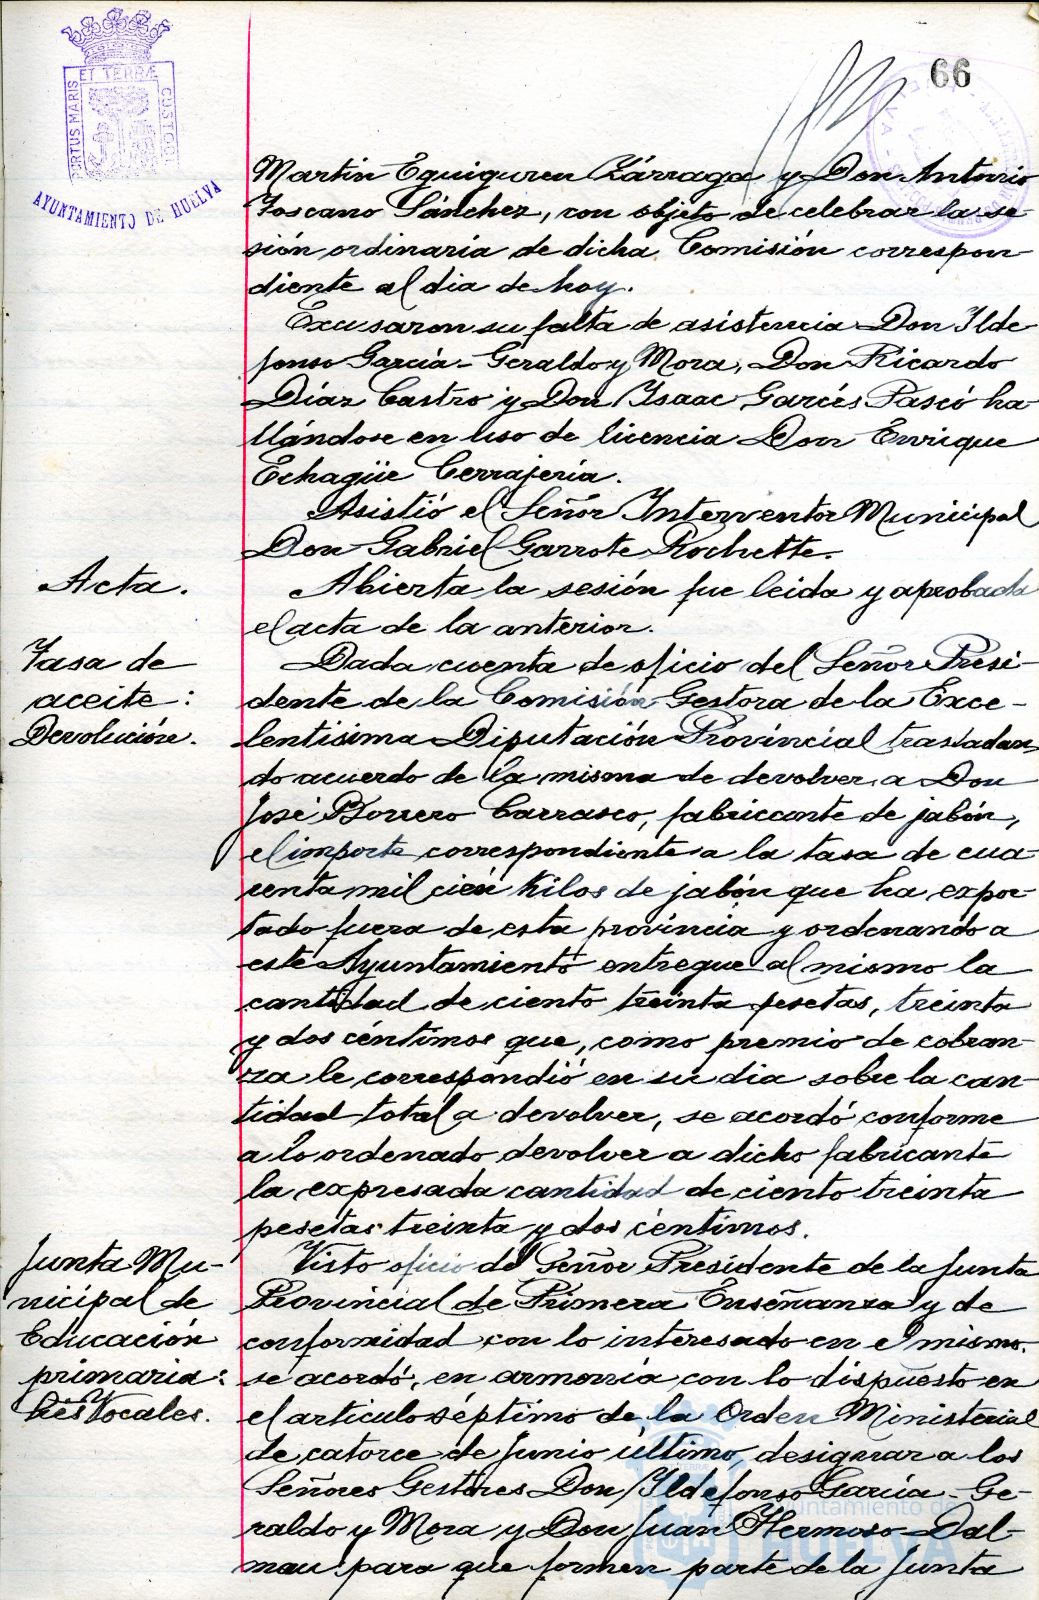 66
ET TERRÆ
PORTUS MARIS
CUSTODI
AYUNTAMIENTO DE HUELVA
Martin Eguiguren Zárraga y Don Antonio
Toscano Sánchez, con objeto de celebrar la se-
sión ordinaria de dicha Comisión correspon-
diente al dia de hoy.
Excusaron su falta de asistencia Don Ilde
fonso García-Geraldo y Mora, Don Ricardo
Díaz Castro y Don Isaac Garcés Pascó ha-
llándose en uso de licencia Don Enrique
Echagüe Cerrajería.
Asistió el Señor Interventor Municipal
Don Gabriel Garrote Rochette.
Acta.
Abierta la sesión fue leida y aprobada
el acta de la anterior.
Tasa de
aceite:
Devolución.
Dada cuenta de oficio del Señor Presi-
dente de la Comisión Gestora de la Exce-
lentisima Diputación Provincial trasladan
do acuerdo de la misma de devolver a Don
José Borrero Carrasco, fabricante de jabón,
el importe correspondiente a la tasa de cua-
renta mil cien kilos de jabón que ha expor-
tado fuera de esta provincia y ordenando a
este Ayuntamiento entregue al mismo la
cantidad de ciento treinta pesetas, treinta
y dos céntimos que, como premio de cobran-
za le correspondió en su dia sobre la can-
tidad total a devolver, se acordó conforme
a lo ordenado devolver a dicho fabricante
la expresada cantidad de ciento treinta
pesetas treinta y dos céntimos.
Junta Mu-
nicipal de
Educación
primaria:
tres Vocales.
Visto oficio del Señor Presidente de la Junta
Provincial de Primera Enseñanza y de
conformidad con lo interesado en el mismo.
se acordó, en armonía con lo dispuesto en
el articulo séptimo de la Orden Ministerial
de catorce de Junio último, designar a los
Señores Gestores Don Ildefonso García-Ge-
raldo y Mora y Don Juan Hermoso Dal-
mau para que formen parte de la Junta
Ayuntamiento de
HUELVA